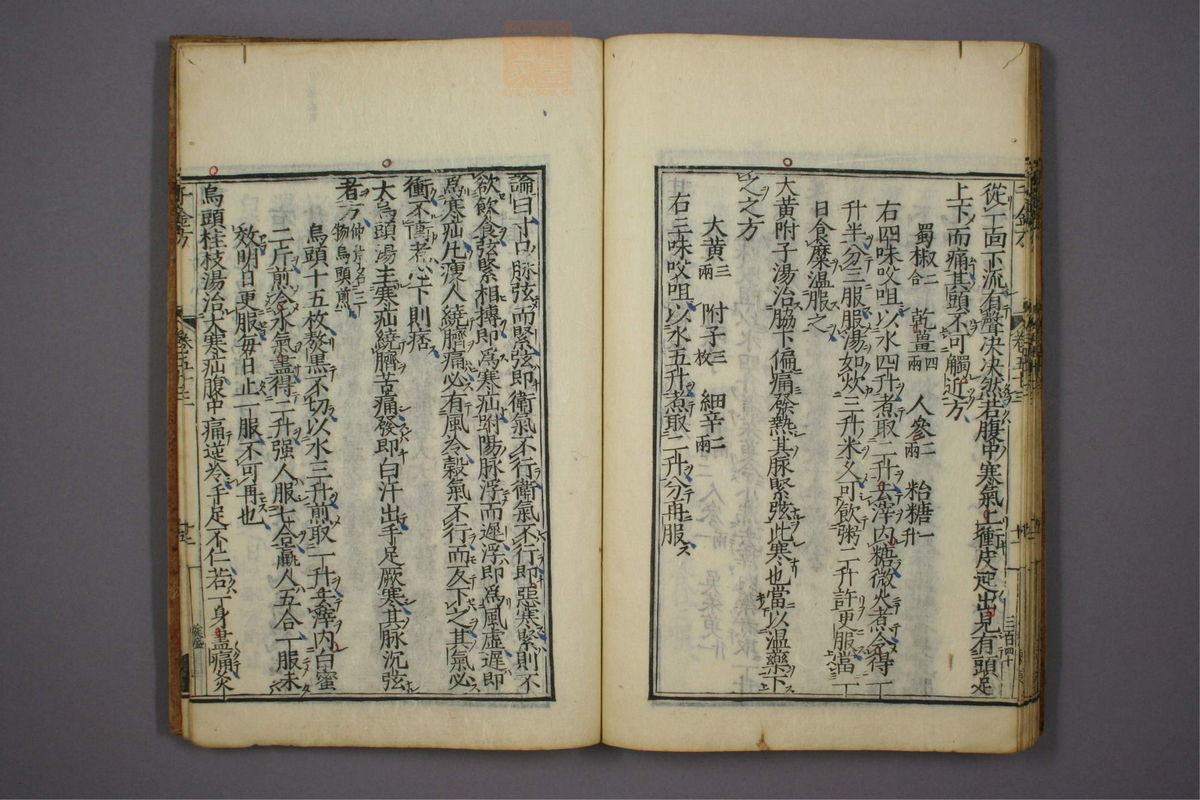 從一面下流有聲决决然若腹中寒氣上衝皮起出見有頭足
上下而痛其頭不可觸近方
蜀椒二合 乾薑四兩 人參二兩 粘糖一升
右四味㕮咀以水四升煮取二升去滓内糖微火煮令得一
升半分三服服湯如炊三升米久可飲粥二升許更服當一
日食糜溫服之
大黃附子湯治脇下偏痛發熱其脉緊弦此寒也當以溫藥下
之之方
大黃三兩 附子三枚 細辛二兩
右三味㕮咀以水五升煮取二升分再服
論曰寸口脉弦而緊弦即衛氣不行衛氣不行即惡寒緊則不
欲飲食弦緊相搏即爲寒疝趺陽脉浮而遲浮即爲風虛遲即
爲寒疝凡瘦人繞臍痛必有風冷穀氣不行而反下之其氣必
衝不衝者心下則痞
大烏頭湯主寒疝繞臍苦痛發即白汗出手足厥寒其脉沉弦
者方
烏頭十五枚熬黑不切以水三升煎取一升去滓内白蜜
二斤煎令水氣盡得二升强人服七合羸人五合一服未
效明日更服每日止一服不可再也
烏頭桂枝湯治大寒疝腹中痛逆冷手足不仁若一身盡痛灸